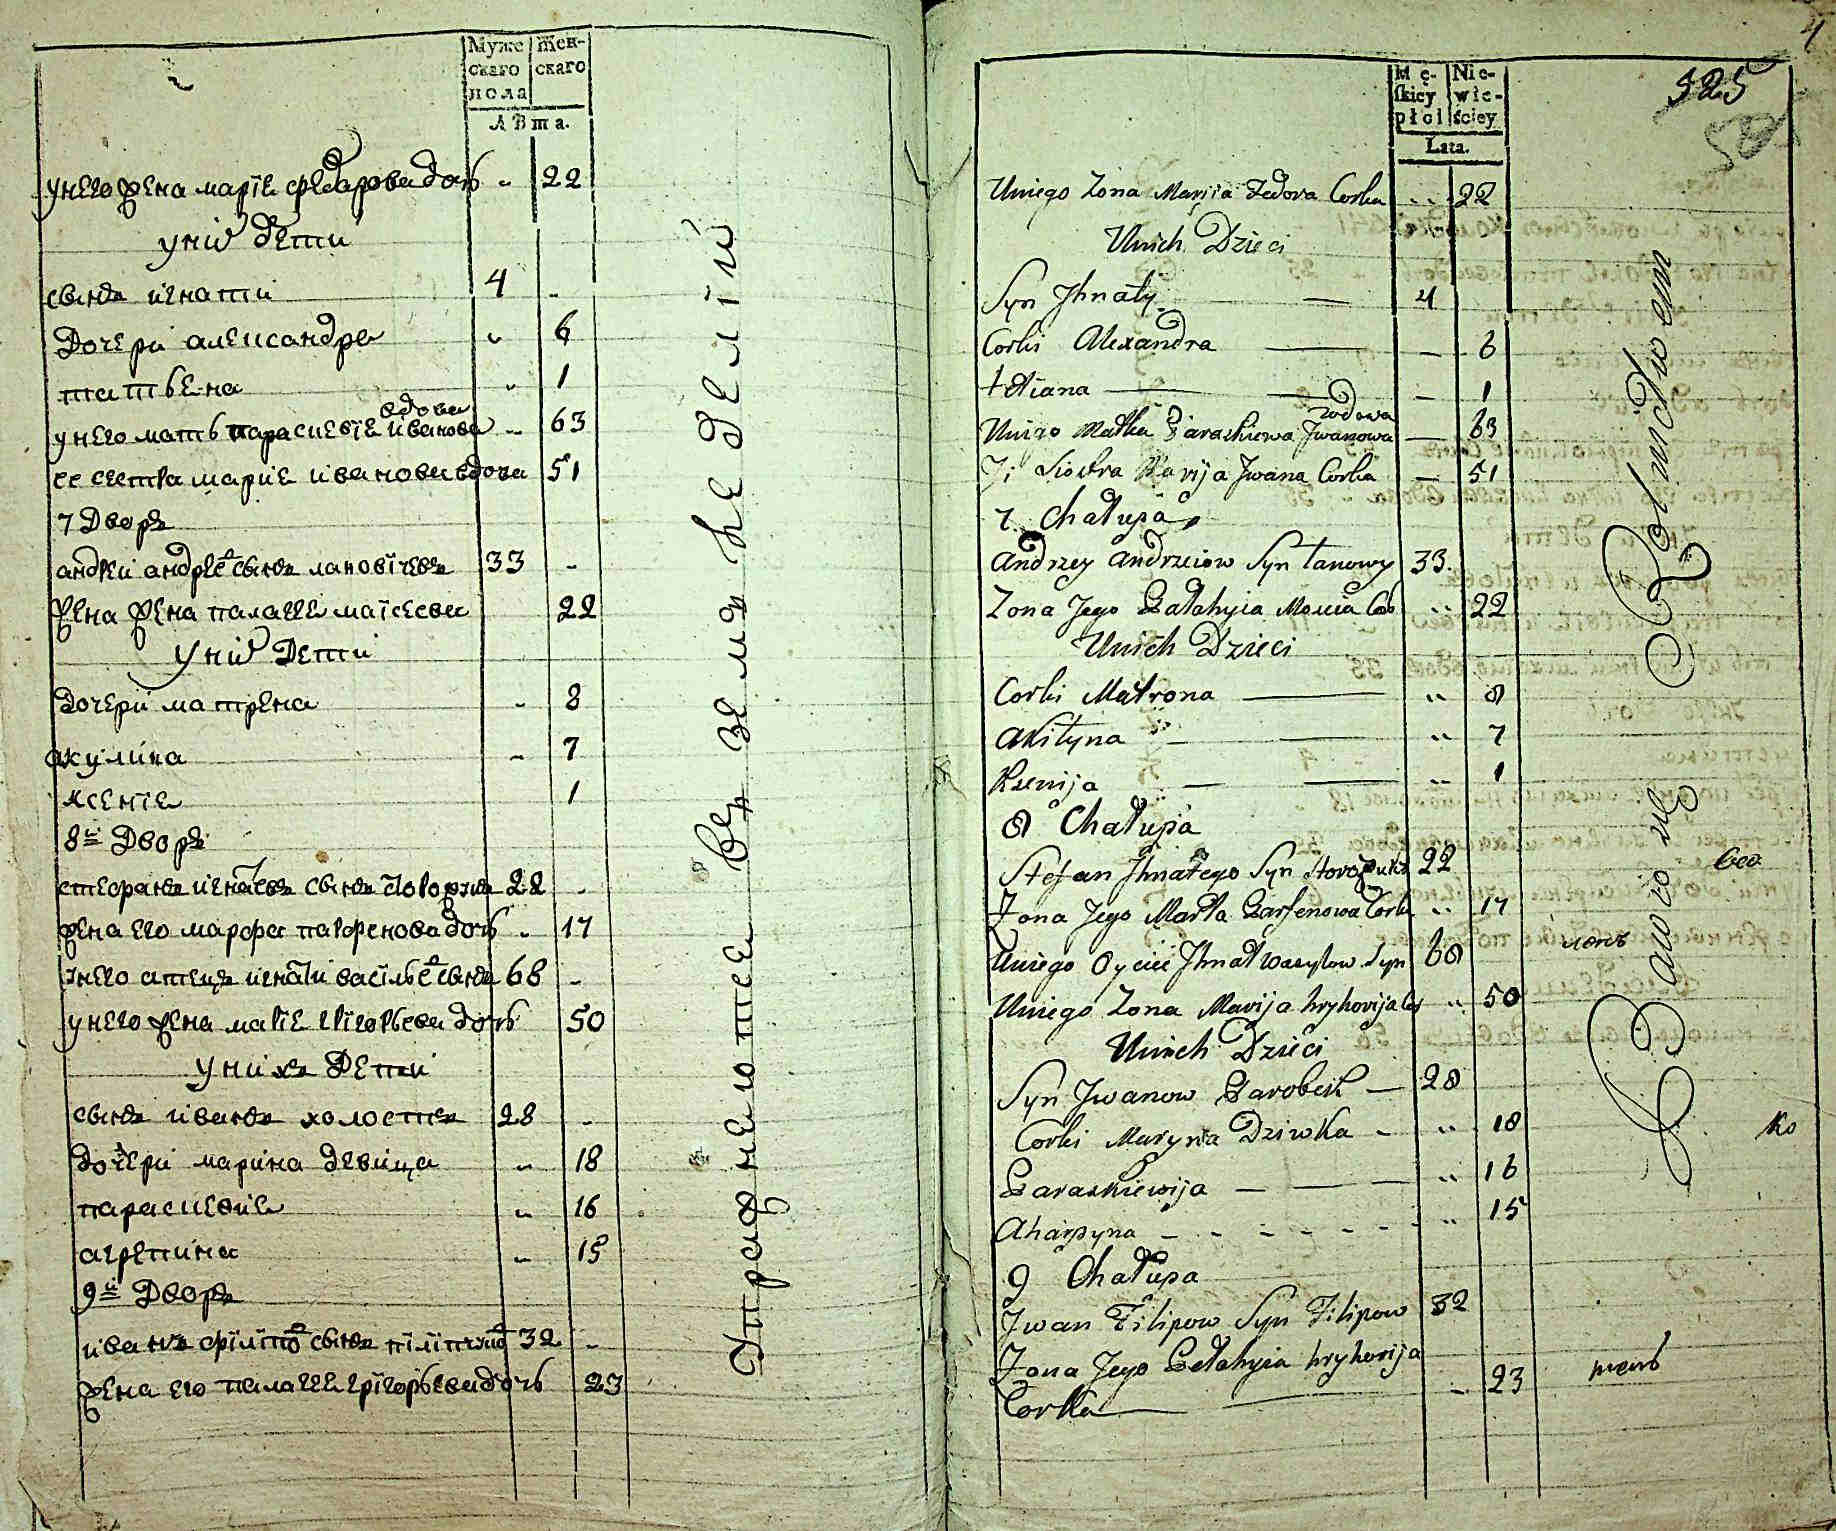 Муже Жен-
скаго скаго
пола
Лѣта.
унего жена марїѣ федарова дочь „ 22
униⷯ дети
сынъ игнати 4 „
дочери александра „ 6
татьена „ 1
вдова
унего мать парасковїѣ иванова „ 63
ее сестра марие иванова вдова 51
7 дворъ
андреи андреевъ сынъ 33 „
жена жена палагее маїсеева 22
униⷯ дети
дочери матрена „ 8
акулина „ 7
ксенїе 1
8й дворъ
стефанъ игнатевъ сынъ 22 „
жена его марфа парфенова дочь „ 17
унего атецъ игнати васільевъ сынъ 68 „
унего жена марїе грїгорьева дочь 50
унихъ дети
сынъ иванъ холостъ 28 „
дочери марина девица „ 18
парасковие „ 16
агрепина „ 15
9й дворъ
иванъ филіповъ сынъ 32 „
жена его палагее грігорьева дочь 23
Упражнеютсе въ земледелїи
4
525
Mę- Nie-
ſkiey wie-
płci ściey
Lata.
Uniego Zona Maryia Fedora Corka „ 22
Unich Dzieci
Syn Jhnaty — 4
Corki Alexandra — — 6
tatiana — — 1
wdowa
Uniego Matka Paraskiewa Jwanowa — 63
Jei Siostra Maryja Jwana Corka — 51
7 Chałupa
Andrzey Andrzeiow Syn 33
Zona Jego Pałahyia „ 22
Unich Dzieci
Corki Matrona — „ 8
Akilyna — — „ 7
Ksenija — — „ 1
8 Chałupa
Stefan Jhnatego Syn 22
Zona Jego Marta Parfenowa Corka „ 17
Uniego Oyciec Jhnat Wasylow Syn 68
Uniego Zona Marija hryhorija „ 50
Unich Dzieci
Syn Jwanow Parobek — 28
Corki Maryna Dziwka - „ 18
Paraskiewija — — — „ 16
Aharpyna - - - - - - „ 15
9 Chałupa
Jwan Filipow Syn Filipow 32
Zona Jego Pełahyia hryhorija
Corka — 23
Bawio się Rolnictwem
ко